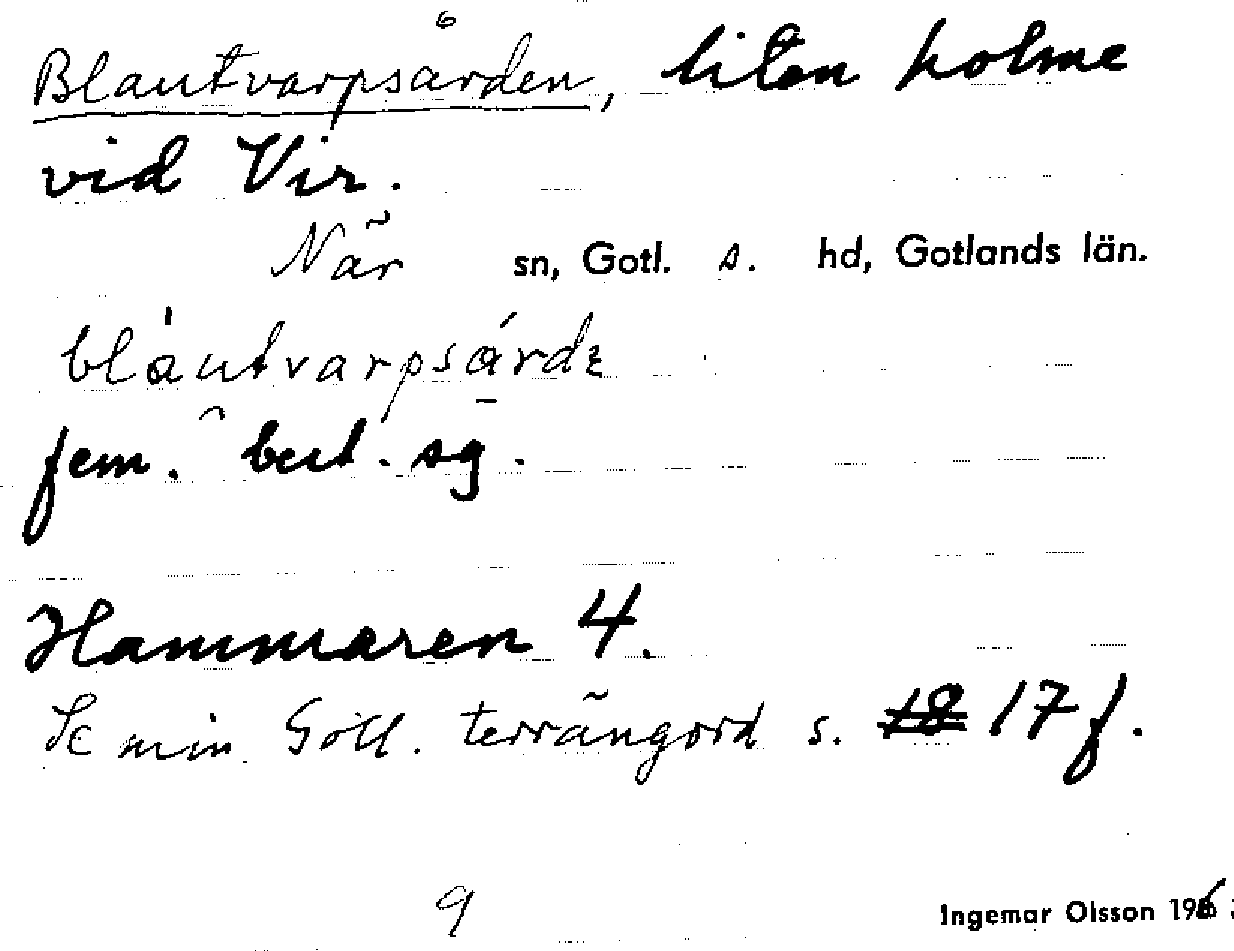 Blautvarpsården, liten holme
vid Vir.
När sn, Gotl. s. hd, Gotlands län.
blàutvarpsárdɛ
fem. best. sg.
Hammaren 4.
Se min Gotl. terrängord s. 17 f.
9
Ingemar Olsson 196